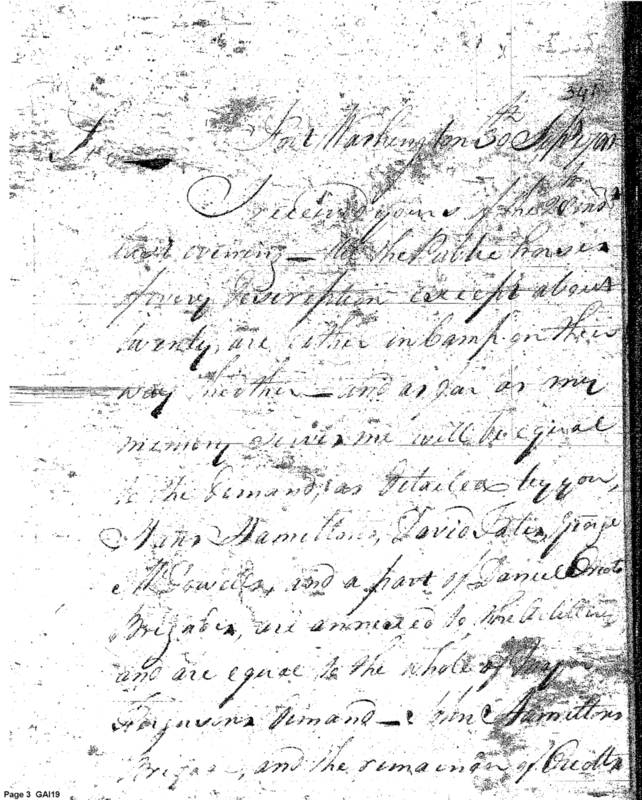 341
Fort Washington 30th Sept 1791
Sir
I received yours of the
last evening — All the Public horses
of every Description except about
twenty, are either in Camp or on their
way hither — and as far as my
memory serves me will be equal
to the Demand, as Detailed by you,
Hamiltons, David George
McDowells, and a part of Daniel
Brigades, are annexed to the Artillery
and are equal to the whole of
Fergusons demand — Hamiltons
and the remainder of
Page 3 GAI19